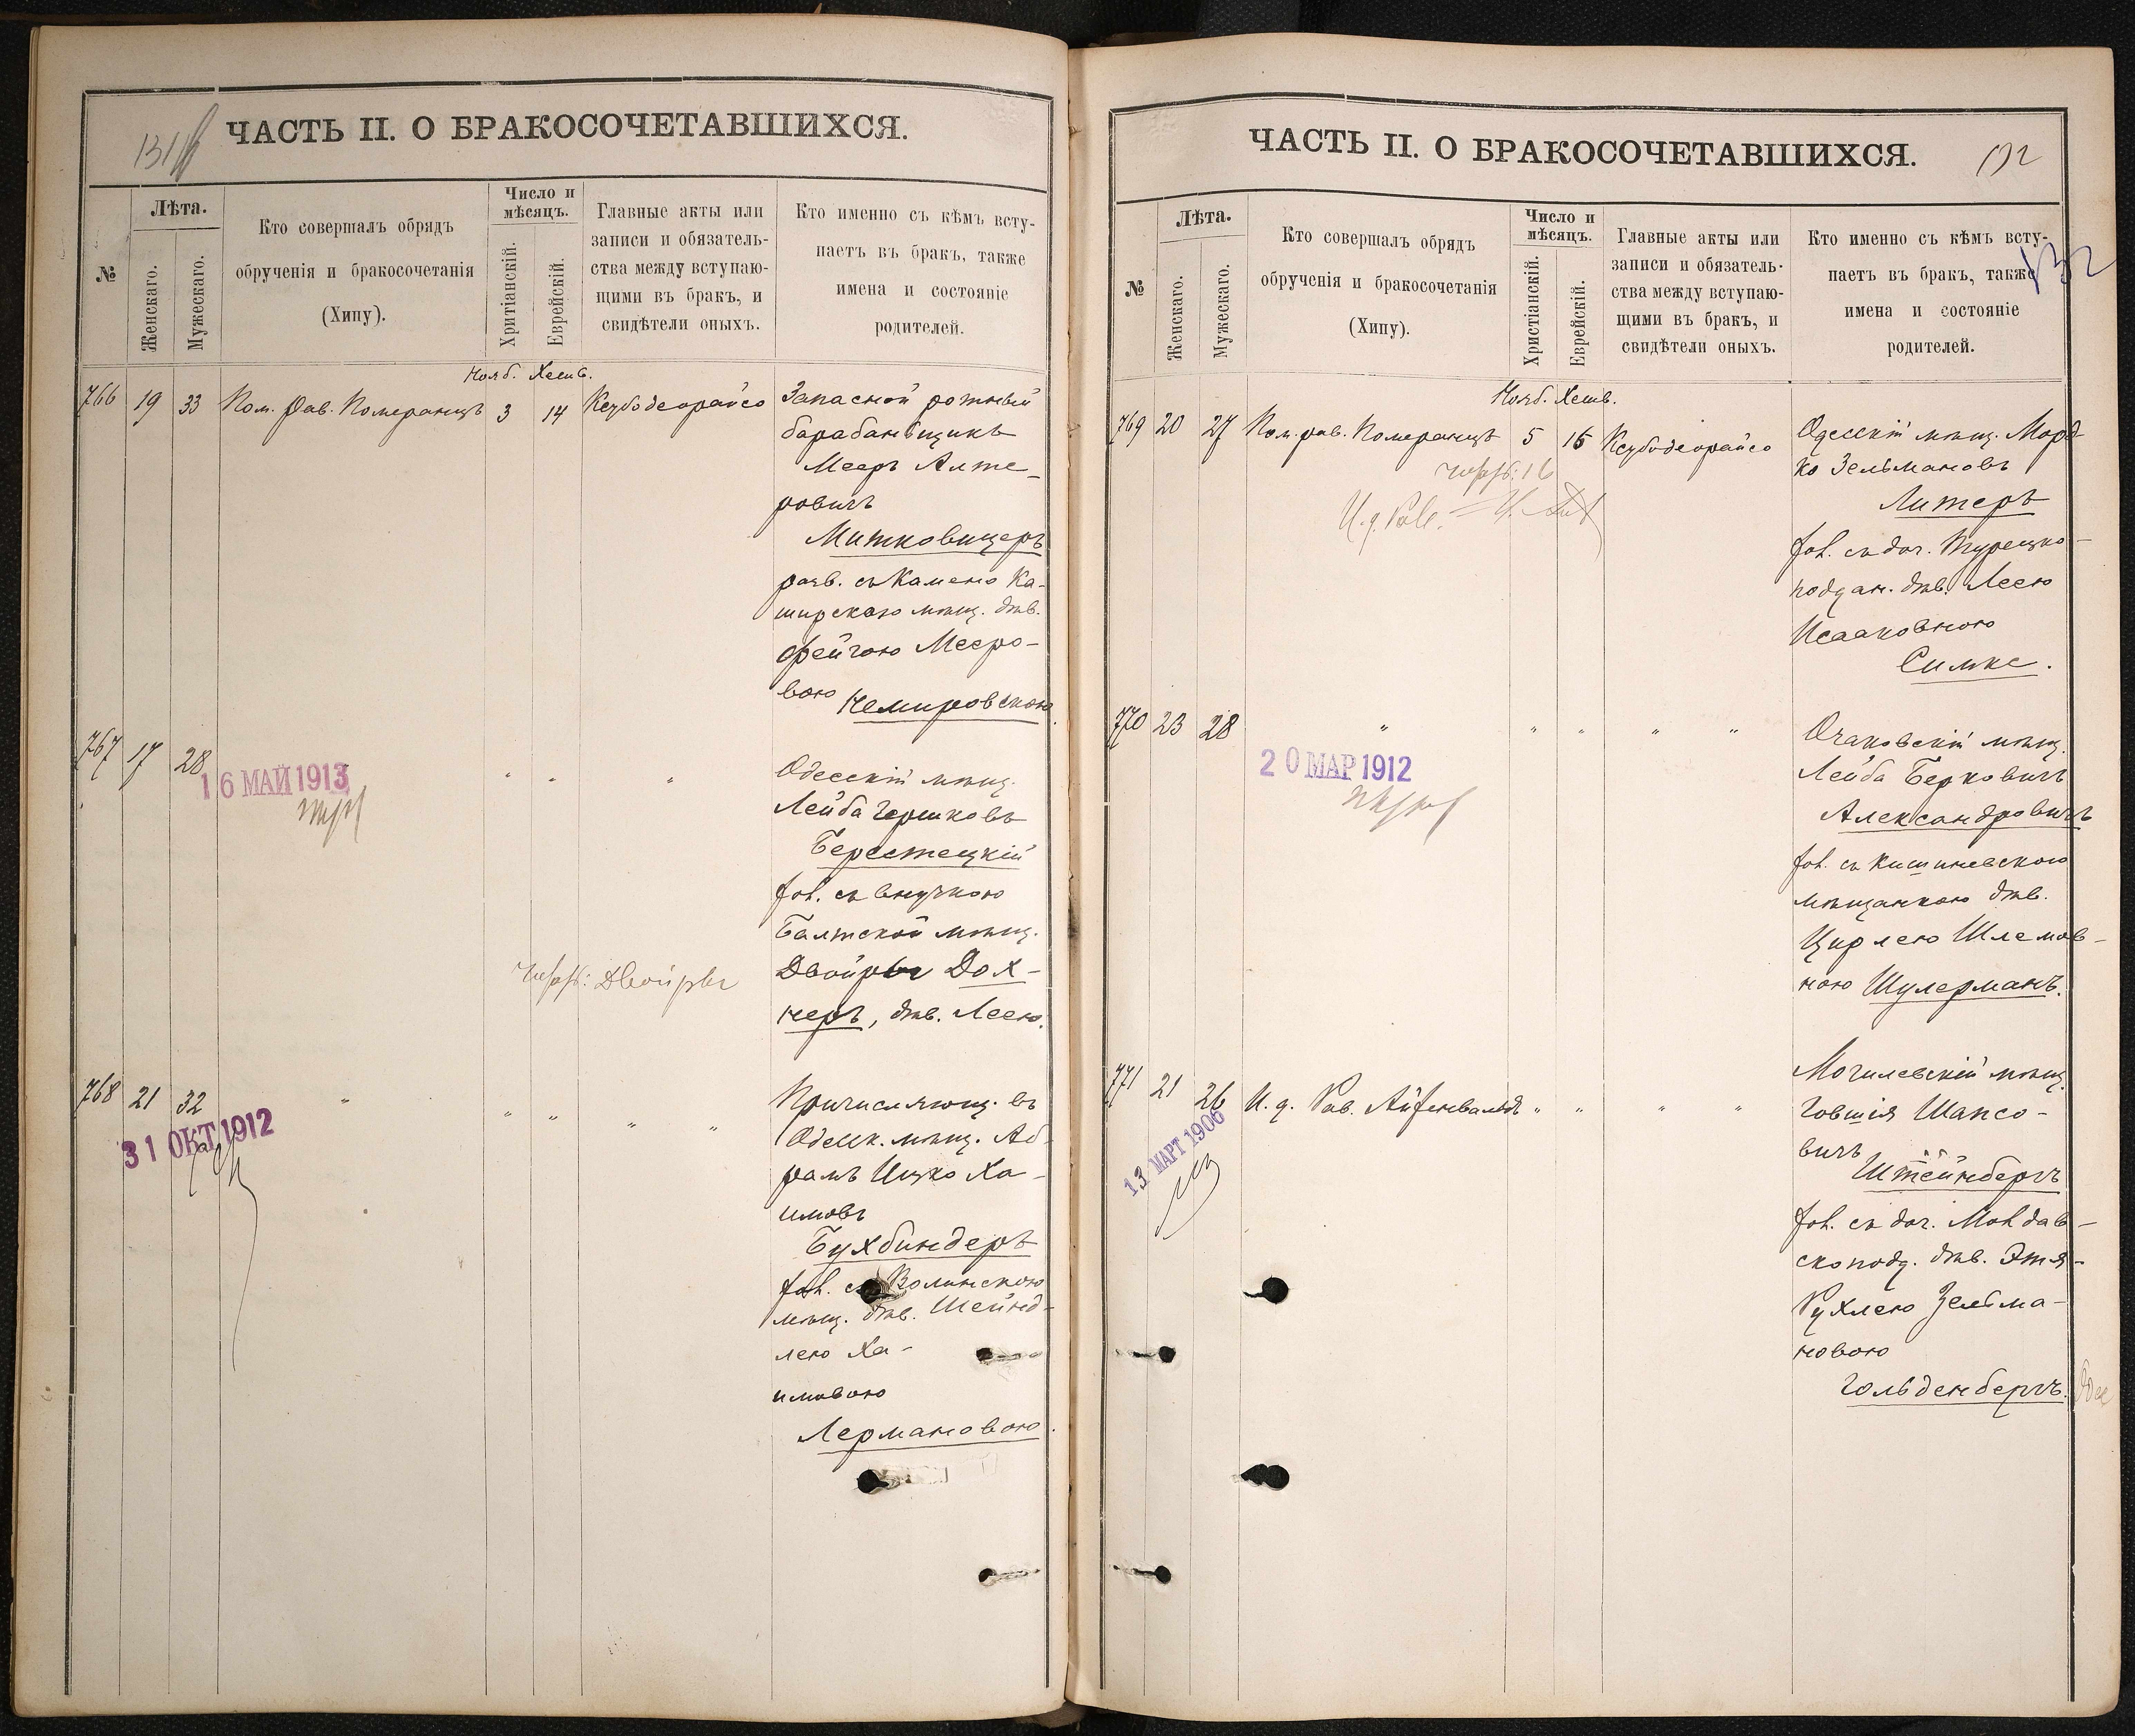 ЧАСТЬ II. О БРАКОСОЧЕТАВШИХСЯ.
№
Лѣта.
Женскаго.
Мужескаго.
Кто совершалъ обрядъ
обрученія и бракосочетанія
(Хипу).
Число и
мѣсяцъ.
Хритіанскій.
Еврейскій.
Главные акты или
записи и обязатель-
ства между вступаю-
щими въ бракъ, и
свидѣтели оныхъ.
Кто именно съ кѣмъ всту-
паетъ въ бракъ, также
имена и состояніе
родителей.
Нояб. Хешв.
766 19 33 Пом. Рав. Померанцъ 3 14 Ксубодеорайсо
Запасной ротный
барабанщикъ
Мееръ Алте-
ровичъ
Митковицеръ
разв. съ Камено Ка-
ширскою мѣщ. дѣв.
Фейгою Мееро-
вою Немировскою.
767 17 28 " " "
16 МАЙ 1913
Одесскій мѣщ.
Лейба Гершковъ
Берестецкій
хол. съ внучкою
Балтской мѣщ.
Двойры Дох-
неръ, дѣв. Леею.
Двойры
768 21 32 " " " " "
31 ОКТ 1912
Причисляющ. въ
Одесск. мѣщ. Аб-
рамъ Ицко Ха-
имовъ
Бухбиндеръ
хол. съ Волынскою
мѣщ. дѣв. Шейнд-
лею Ха-
имовою
Лермановою.
ЧАСТЬ II. О БРАКОСОЧЕТАВШИХСЯ.
132
132
№
Лѣта.
Женскаго.
Мужескаго.
Кто совершалъ обрядъ
обрученія и бракосочетанія
(Хипу).
Число и
мѣсяцъ.
Христіанскій.
Еврейскій.
Главные акты или
записи и обязатель-
ства между вступаю-
щими въ бракъ, и
свидѣтели оныхъ.
Кто именно съ кѣмъ всту-
паетъ въ бракъ, также
имена и состояніе
родителей.
Нояб. Хешв.
769 20 27 Пом. рав. Померанцъ 5 16 Ксубодеорайсо
Одесскій мѣщ. Морд-
ко Зельмановъ
Литеръ
хол. съ доч. Турецко-
поддан. дѣв. Леею
Исааковною
Симке.
770 23 28 " " " " "
20 МАР 1912
Очаковскій мѣщ.
Лейба Берковичъ
Александровичъ
хол. съ Кишиневскою
мѣщанкою дѣв.
Цирлею Шлемов-
ною Шулерманъ.
771 21 26 И. д. Рав. Айзенвальдъ " " " "
13 МАРТ 1906
Могилевскій мѣщ.
Говшія Шапсо-
вичъ
Штейнбергъ
хол. съ доч. Молдав-
скоподд. дѣв. Этя-
Рухлею Зельма-
новою
Гольденбергъ.